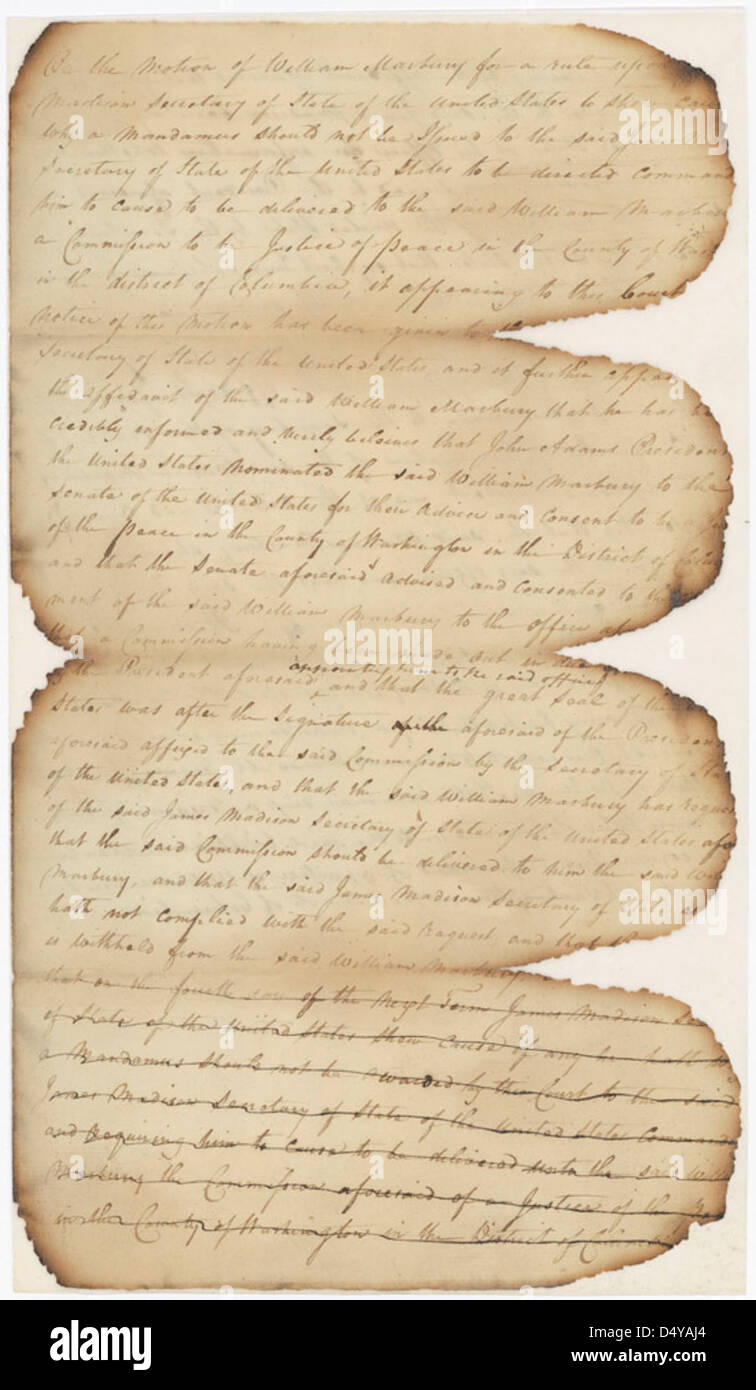 On the Motion of William Marbury for a rule upon
Madison Secretary of State of the United States to show cau
why a Mandamus should not be Issued to the said Ja
Secretary of State of the United States to be directed Command
him to cause to be delivered to the said William Marbu
a Commission to be Justice of Peace in the County of Was
in the district of Columbia, it appearing to this Court
notice of this Motion has been given to the
Secretary of State of the United States and it further appea
the affidavit of the said William Marbury that he has be
credibly informed and verily believes that John Adams President
the United States Nominated the said William Marbury to the
Senate of the United States for their Advice and Consent to be a Ju
of the Peace in the County of Washington in the District of Colu
and that the Senate aforesaid Advised and Consented to the
ment of the said William Marbury to the office af
that a Commission having been made out in due
appointing him to the said office
by the President aforesaid, and that the great Seal of the
States was after the Signature aforesaid of the President
aforesaid affixed to the said Commission by the Secretary of Sta
of the United States, and that the said William Marbury has reque
of the said James Madison Secretary of State of the United States afo
that the said Commission should be delivered to him the said Will
Marbury, and that the said James Madison Secretary of State af
hath not complied with the said request, and that the
is withheld from the said William Marbury
that on the fourth day of the Next Term James Madison Sec
of State of the United States Show Cause if any he hath w
a Mandamus should not be awarded by this Court to the said
James Madison Secretary of State of the United States Commandi
and Requiring him to cause to be delivered unto the said Willi
Marbury the Commission aforesaid of a Justice of the Pea
in the County of Washington in the District of Columbi
alamy
alamy
alamy
Image ID: D4YAJ4
www.alamy.com